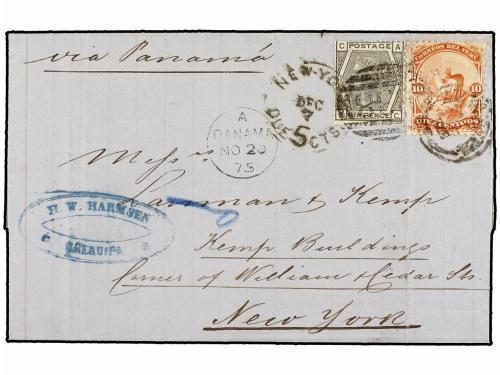 via Panamá
C POSTAGE A
SIX PENCE
CORREOS DEL PERU
10 10
DIEZ CENTAVOS
NEW-YO
DEC
7
DUE 5 CTS
A
PANAMA
NO 20
75
Messrs
Lanman & Kemp
Kemp Buildings
Corner of William & Cedar Sts.
New York
H. W. HARMSEN
AREQUIPA